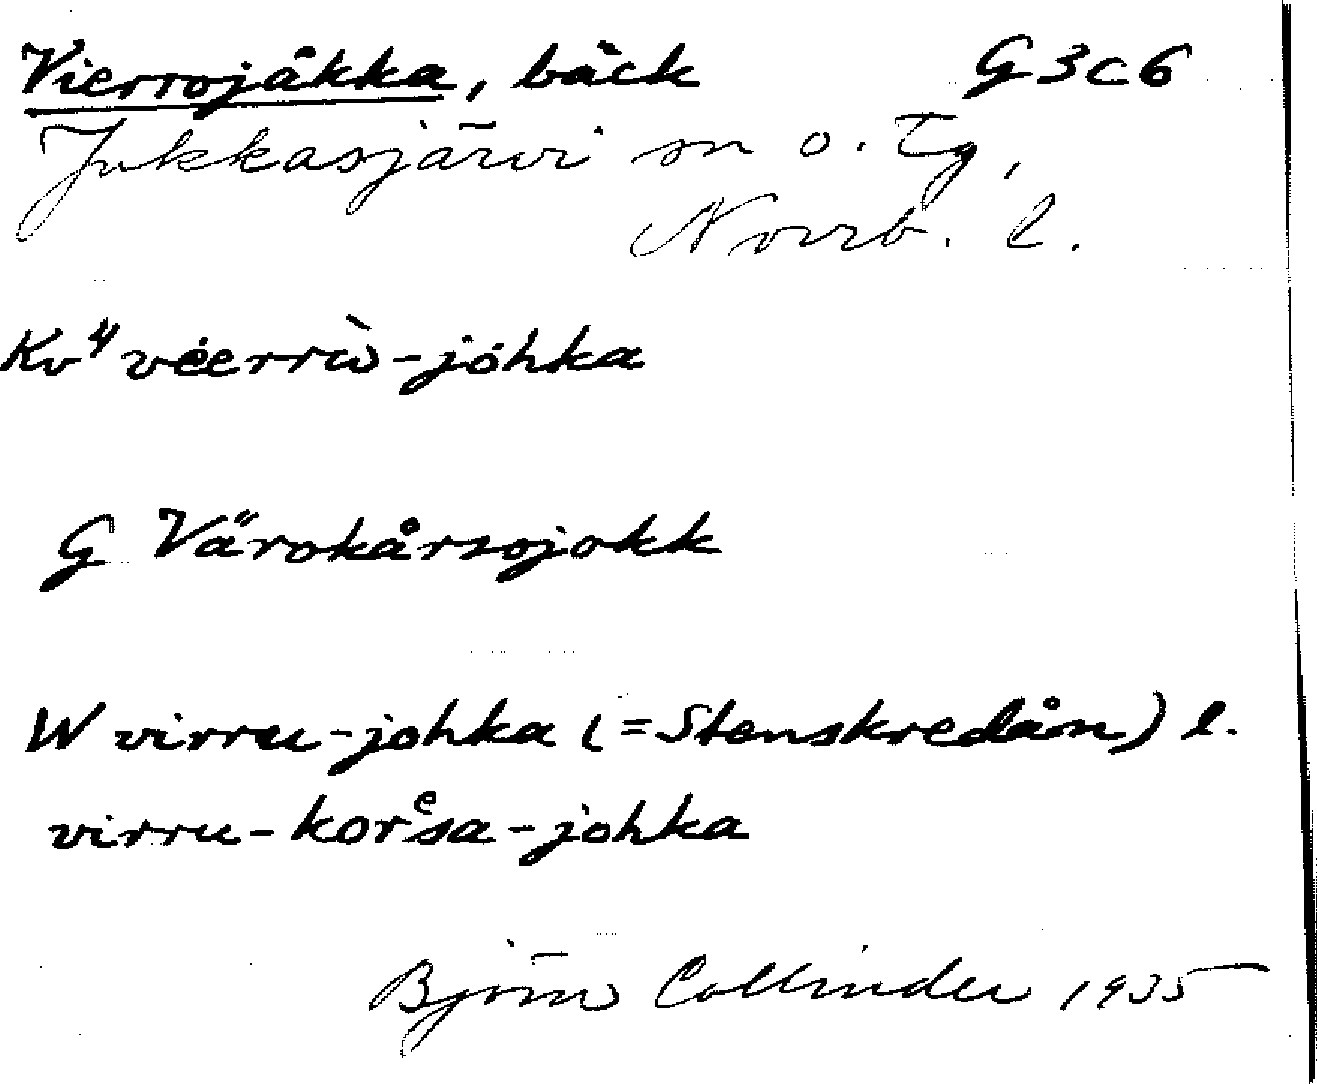 Vierrojåkka, bäck G3c6
Jukkasjärvi sn o. Tg,
Norrb. l.
Kv⁴ véerrù-jóhka
G Värokårsojokk
W virru-johka (=Stenskredån) l.
virru-korᵉsa-johka
Björn Collinder 1935